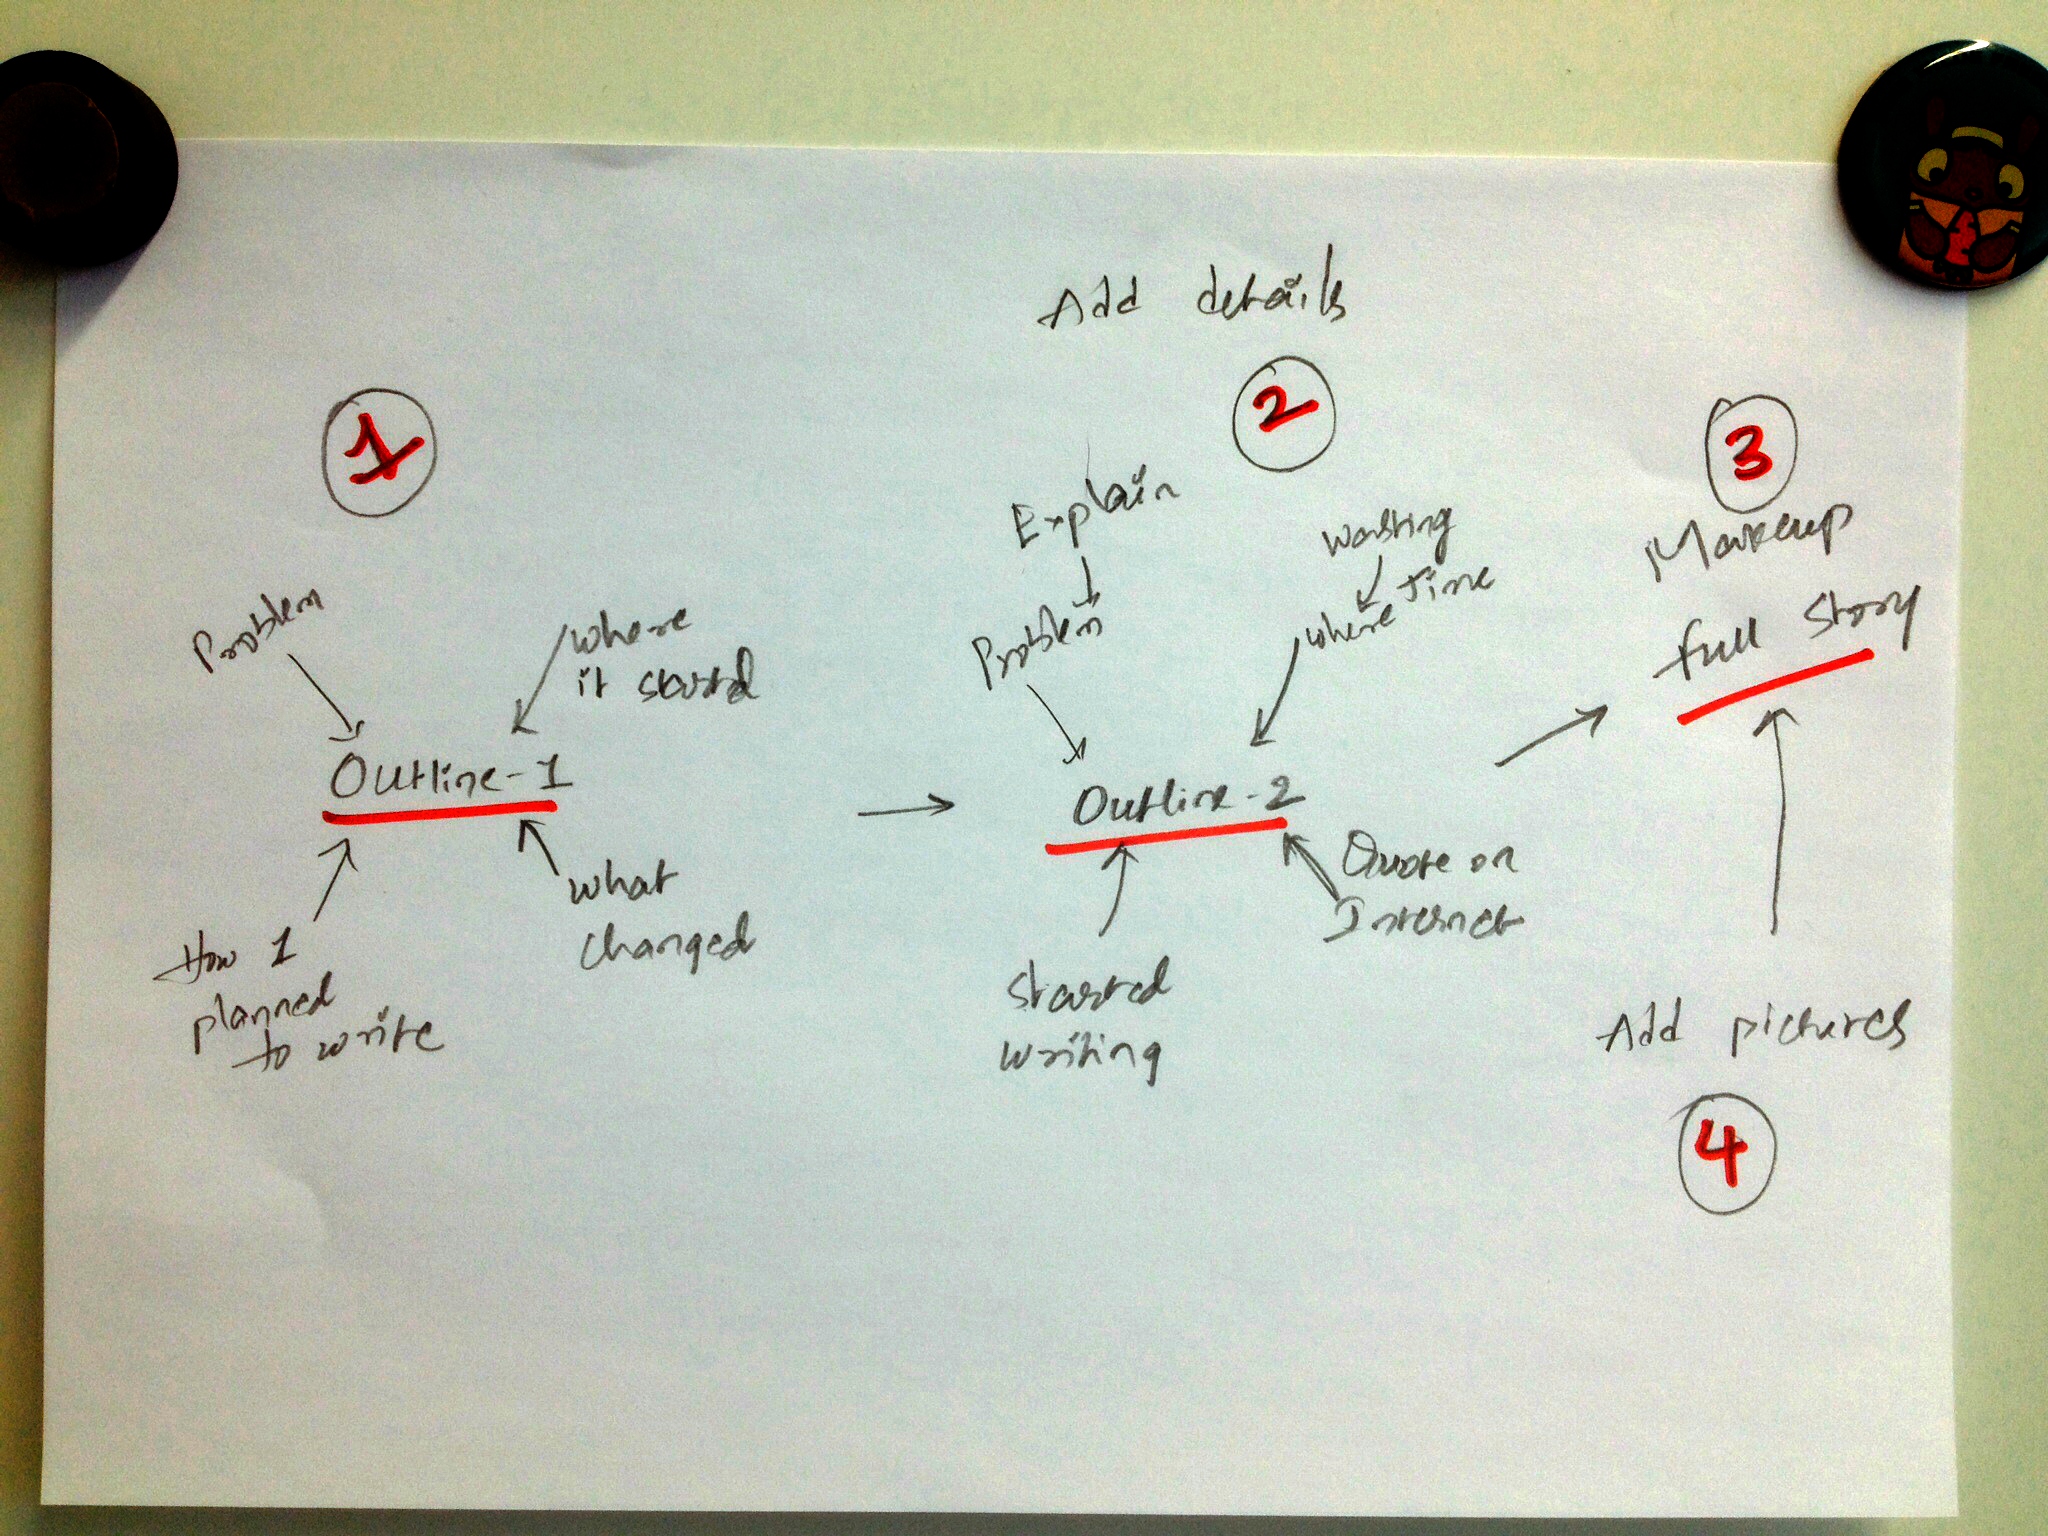 1
Problem
where
it started
Outline-1
How I
planned
to write
what
changed
Add details
2
Explain
Problem
wasting
time
where
Outline-2
Started
writing
Quote on
Internet
3
Makeup
full story
Add pictures
4